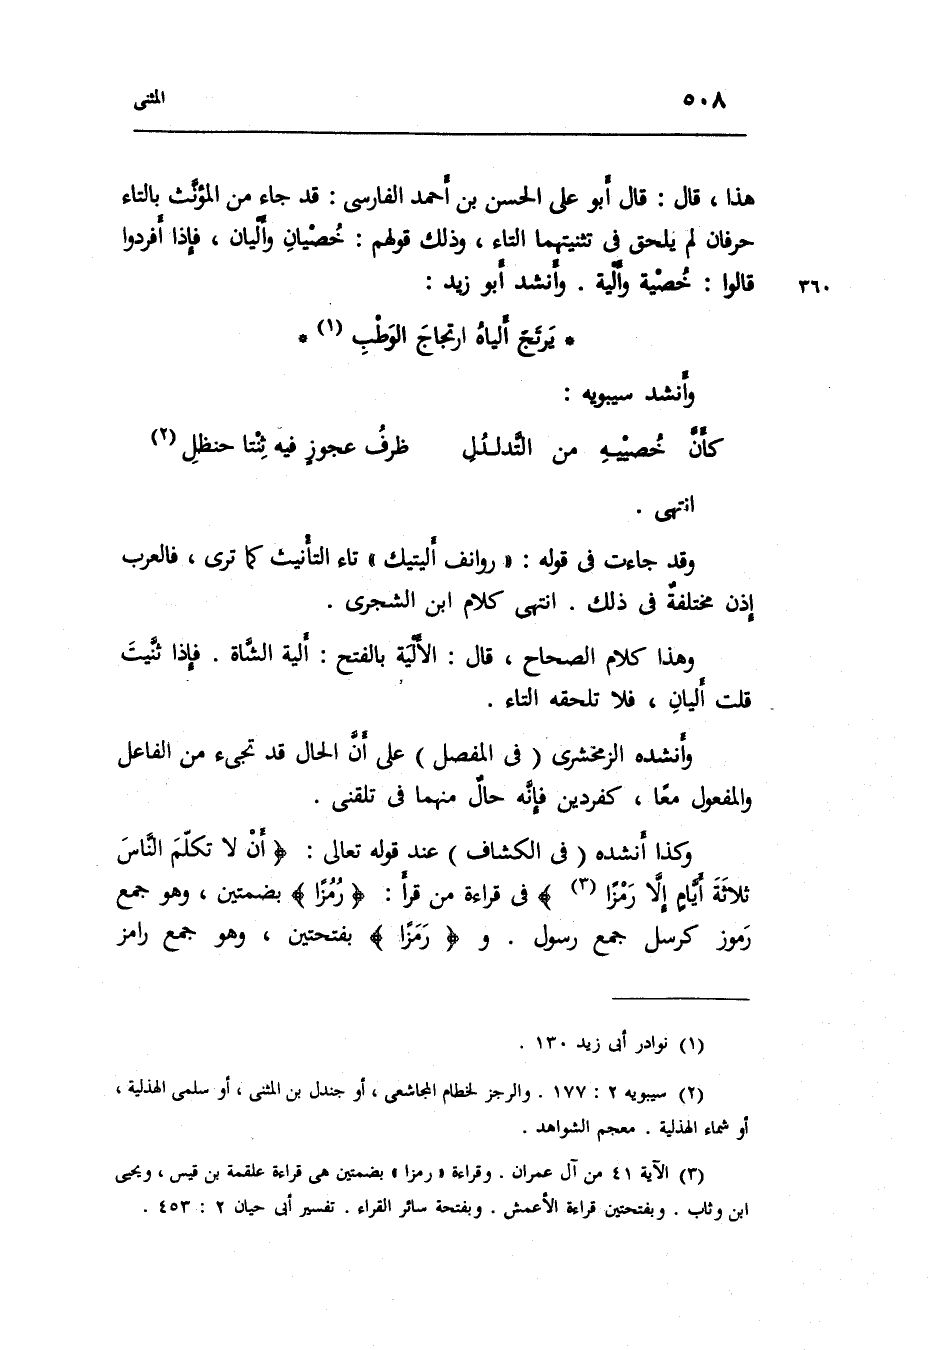 ٥٠٨ المثنى
هذا ، قال : قال أبو على الحسن بن أحمد الفارسى : قد جاء من المؤنَّث بالتاء
حرفان لم يلحق فى تثنيتهما التاء ، وذلك قولهم : خُصْيانِ وأَلْيان ، فإذا أفردوا
قالوا : خُصْية وأَلْية . وأنشد أبو زيد :
٣٦٠
* يَرتَجّ أَلياهُ ارتجاجَ الوَطْبِ (١) *
وأنشد سيبويه :
كأَنَّ خُصيْيـهِ من التَّدلـدُلِ ظرفُ عجوزٍ فيه ثِنْتا حنظلِ (٢)
انتهى .
وقد جاءت فى قوله : « روانف أليتيك » تاء التأنيث كما ترى ، فالعرب
إذن مختلفةٌ فى ذلك . انتهى كلام ابن الشجرى .
وهذا كلام الصحاح ، قال : الأَلْيَة بالفتح : ألية الشَّاة . فإذا ثنَّيتَ
قلت أليانِ ، فلا تلحقه التاء .
وأنشده الزمخشرى ( فى المفصل ) على أنَّ الحال قد تجىء من الفاعل
والمفعول معًا ، كفردين فإنَّه حالٌ منهما فى تلقنى .
وكذا أنشده ( فى الكشاف ) عند قوله تعالى : ﴿ أَنْ لا تكلّمَ النَّاسَ
ثلاثَةَ أَيَّامٍ إلَّا رَمْزًا (٣) ﴾ فى قراءة من قرأ : ﴿ رُمُزًا ﴾ بضمتين ، وهو جمع
رَموز كرسل جمع رسول . و ﴿ رَمَزًا ﴾ بفتحتين ، وهو جمع رامز
(١) نوادر أبى زيد ١٣٠ .
(٢) سيبويه ٢ : ١٧٧ . والرجز لخطام المجاشعى ، أو جندل بن المثنى ، أو سلمى الهذلية ،
أو شماء الهذلية . معجم الشواهد .
(٣) الآية ٤١ من آل عمران . وقراءة « رمزا » بضمتين هى قراءة علقمة بن قيس ، ويحيى
ابن وثاب . وبفتحتين قراءة الأعمش . وبفتحة سائر القراء . تفسير أبى حيان ٢ : ٤٥٣ .